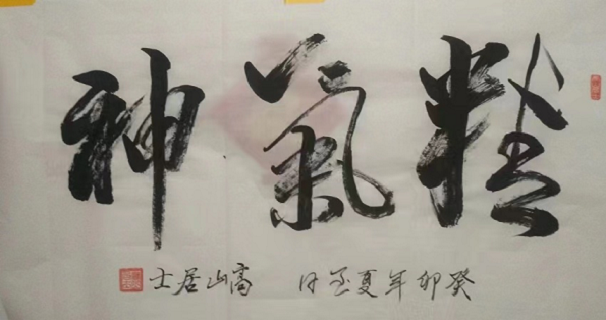 精氣神
癸卯年夏至日 高山居士